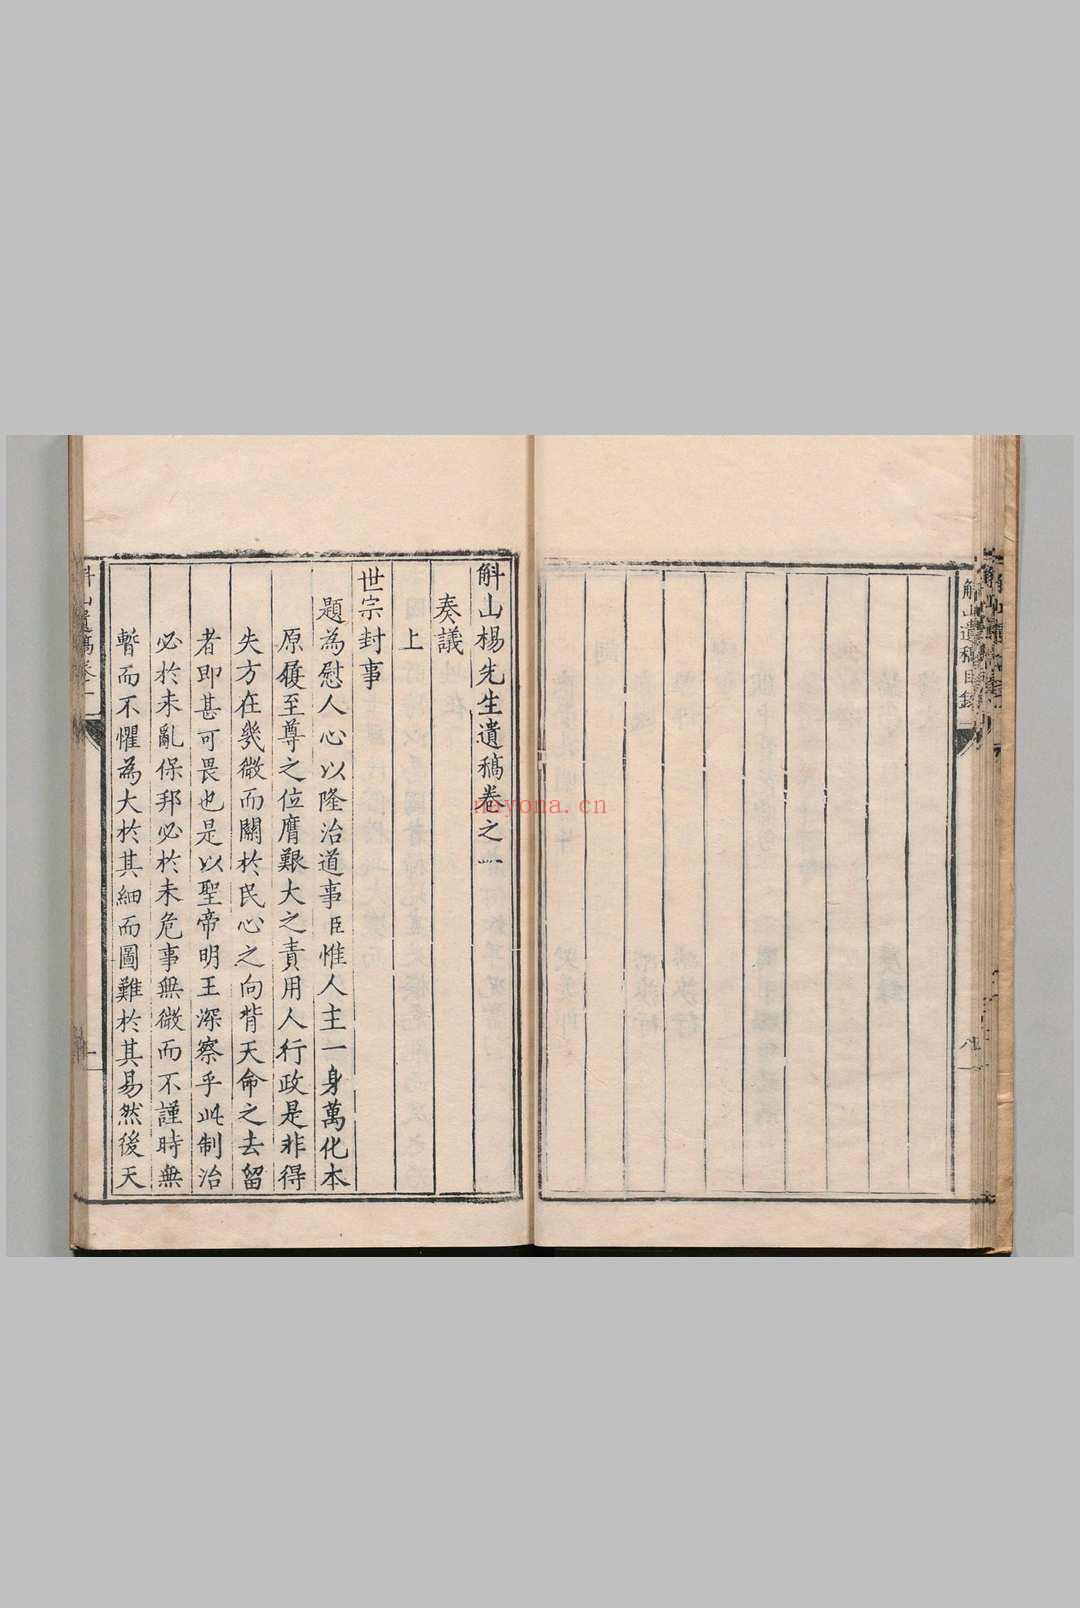 斛山遺稿目錄
斛山楊先生遺稿卷之一
奏議
上
世宗封事
題為慰人心以隆治道事臣惟人主一身萬化本
原履至尊之位膺艱大之責用人行政是非得
失方在幾微而關於民心之向背天命之去留
者即甚可畏也是以聖帝明王深察乎此制治
必於未亂保邦必於未危事無微而不謹時無
暫而不懼為大於其細而圖難於其易然後天
斛山遺稿卷一
nayona.cn